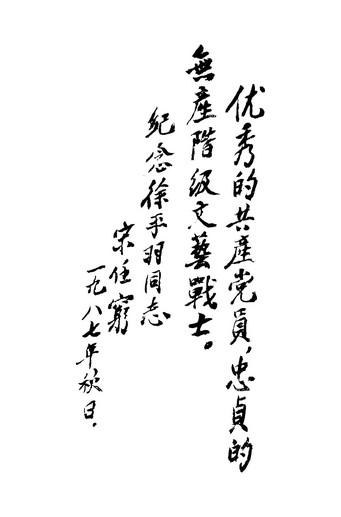 优秀的共產党員，忠貞的
無產階级文藝戰士。
紀念徐平羽同志
宋任窮
一九八七年秋日．